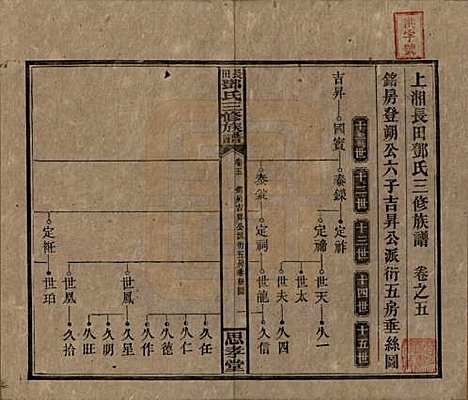 洪字號
上湘長田鄧氏三修族譜 卷之五
銘房登朔公六子吉昇公派衍五房垂絲圖
十一世 十二世 十三世 十四世 十五世
吉昇 國賓 泰鑅 定祚
定禘 世天 久一
世太
世夫 久四
泰棠 定祠 世龍 久信
長田鄧氏三修族譜
卷五
一
思孝堂
久任
久仁
久德
久作
定袵 世鳳 久星
久明
世凰 久旺
世珀 久拾